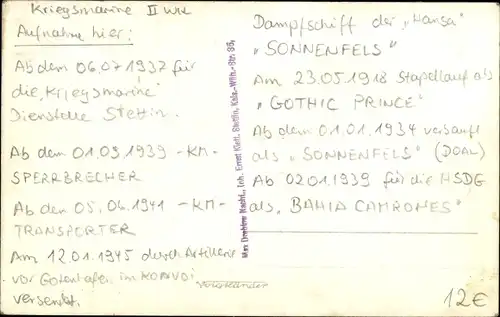 Kriegsmarine II WK
Aufnahme hier:
Ab dem 06.07 1937 für
die „Kriegsmarine"
Dienstelle Stettin.
Ab dem 01.09.1939 -KM-
SPERRBRECHER
Ab den 05.06.1941 -KM-
TRANSPORTER
Am 12.01.1945 durch Artillerie
vor Gotenhafen im KONVOI
versenkt.
Max Dreblow Nachf., Inh. Ernst Kleff, Stettin, Kais.-Wilh.-Str. 35,
Dampfschiff der „Hansa"
„SONNENFELS"
Am 23.05.1918 Stapellauf als
„GOTHIC PRINCE"
Ab dem 01.01.1934 verkauft
als „SONNENFELS" (DOAL)
Ab 02.01.1939 für die HSDG
als „BAHIA CAMRONES"
12€